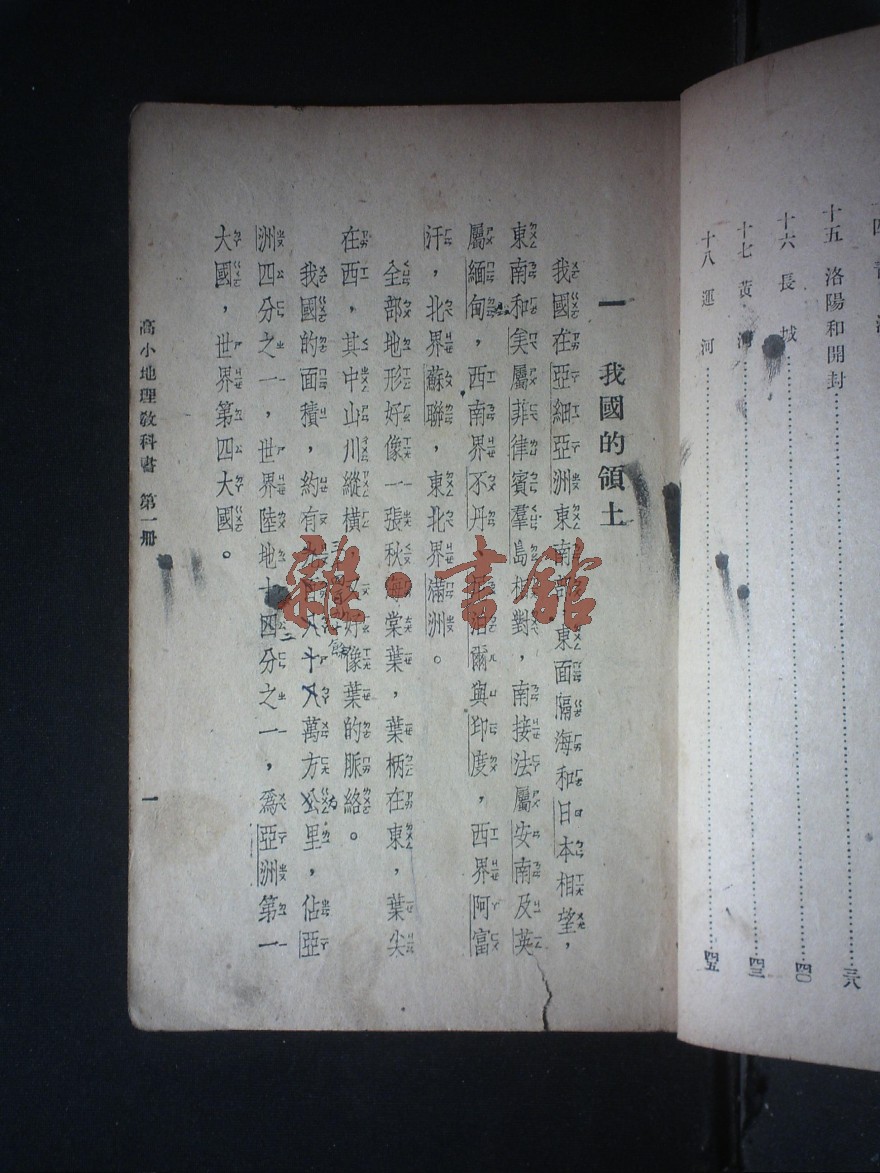 四
十五 洛陽和開封…………三八
十六 長城…………四〇
十七 黃河…………四三
十八 運河…………四五
一 我國的領土
我國在亞細亞洲東南部，東面隔海和日本相望，
東南和美屬菲律賓羣島相對，南接法屬安南及英
屬緬甸，西南界不丹、尼泊爾與印度，西界阿富
汗，北界蘇聯，東北界滿洲。
全部地形好像一張秋海棠葉，葉柄在東，葉尖
在西，其中山川縱橫，好像葉的脈絡。
我國的面積，約有九百八十八萬方公里，佔亞
洲四分之一，世界陸地十四分之一，爲亞洲第一
大國，世界第四大國。
高小地理教科書 第一册
一
雜·書館